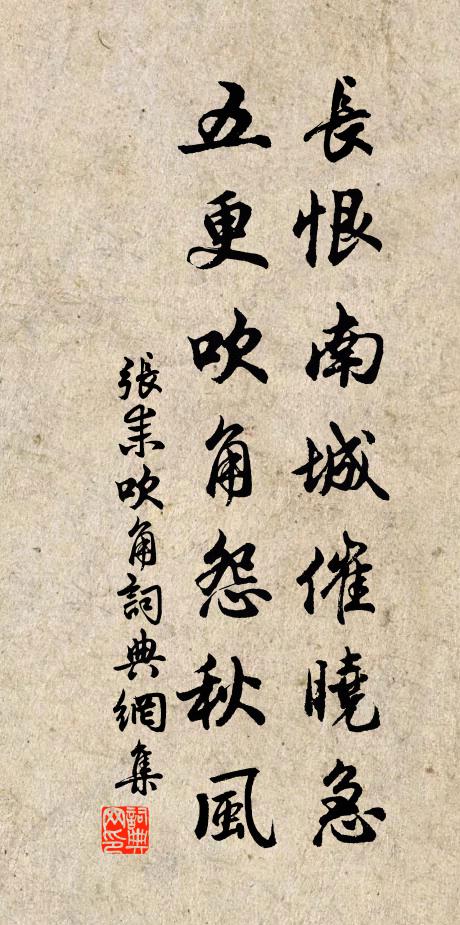 長恨南城催曉急
五更吹角怨秋風
張耒吹角詞典網集
詞典網印